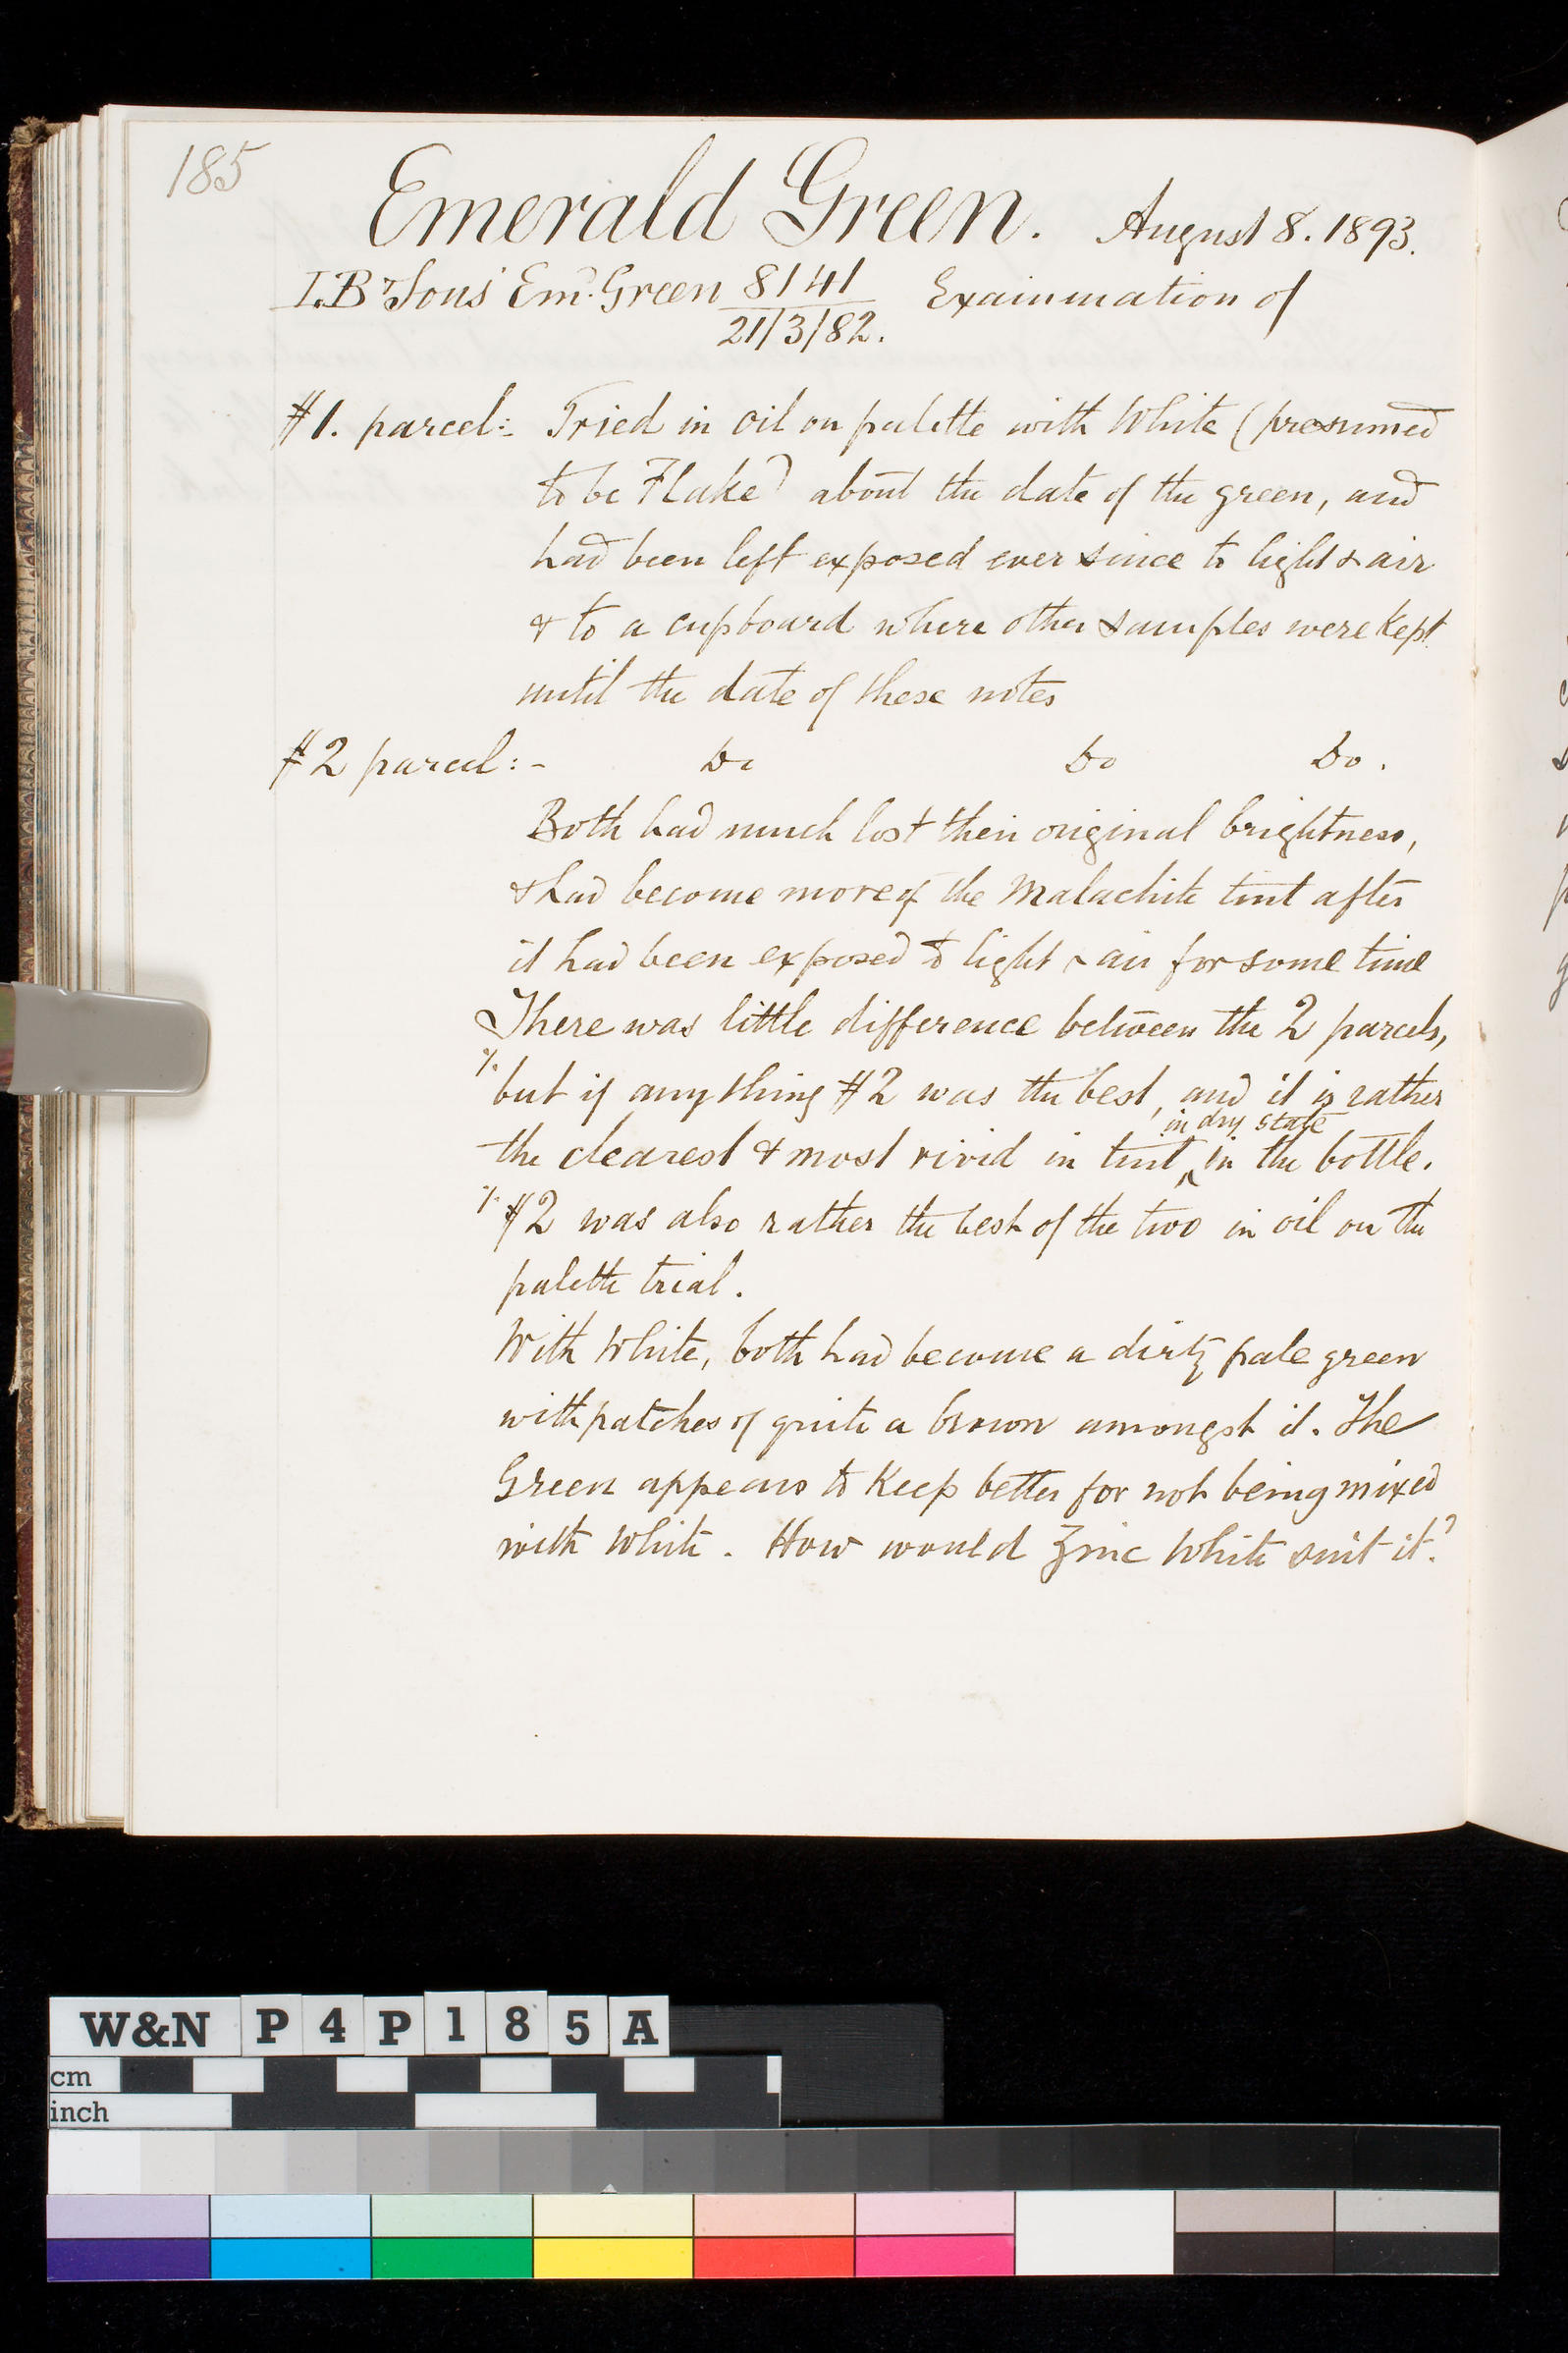 185
Emerald Green. August 8. 1893.
I.B & Sons' Emd. Green 8141 Examination of
21/3/82.
#1. parcel:- Tried in oil on palette with White (presumed
to be Flake) about the date of the green, and
had been left exposed ever since to light & air
& to a cupboard where other samples were kept
until the date of these notes
#2 parcel:- Do Do Do.
Both had much lost their original brightness,
& had become more of the Malachite tint after
it had been exposed to light & air for some time
There was little difference between the 2 parcels,
%. but if anything #2 was the best, and it is rather
in dry state
the clearest & most vivid in tint ‸ in the bottle.
%. #2 was also rather the best of the two in oil on the
palette trial.
With White, both had become a dirty pale green
with patches of quite a brown amongst it. The
Green appears to keep better for not being mixed
with White. How would Zinc White suit it?
W&N P4P185A
cm
inch